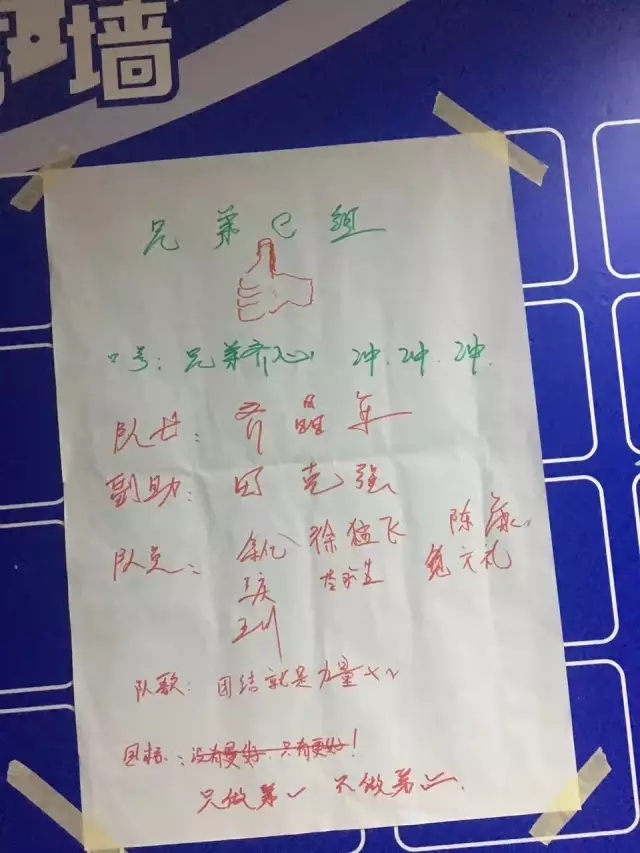 墙
兄弟e组
口号：兄弟齐心 冲.冲.冲.
队长：齐晶军
副助：田克强
队员：徐猛飞 陈康
王庆
王川
队歌：团结就是力量×2
目标：没有最好.只有更好！
只做第一 不做第二.